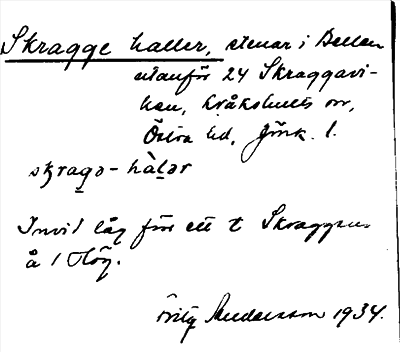 Skragge haller, stenar i Bellen
utanför 24 Skraggavi-
ken, Kråkshults sn,
Östra hd, Jönk. l.
skragə-hàlər
Invid låg för ett t Skraggen
å 1 Höj.
Fritz Andersson 1934.